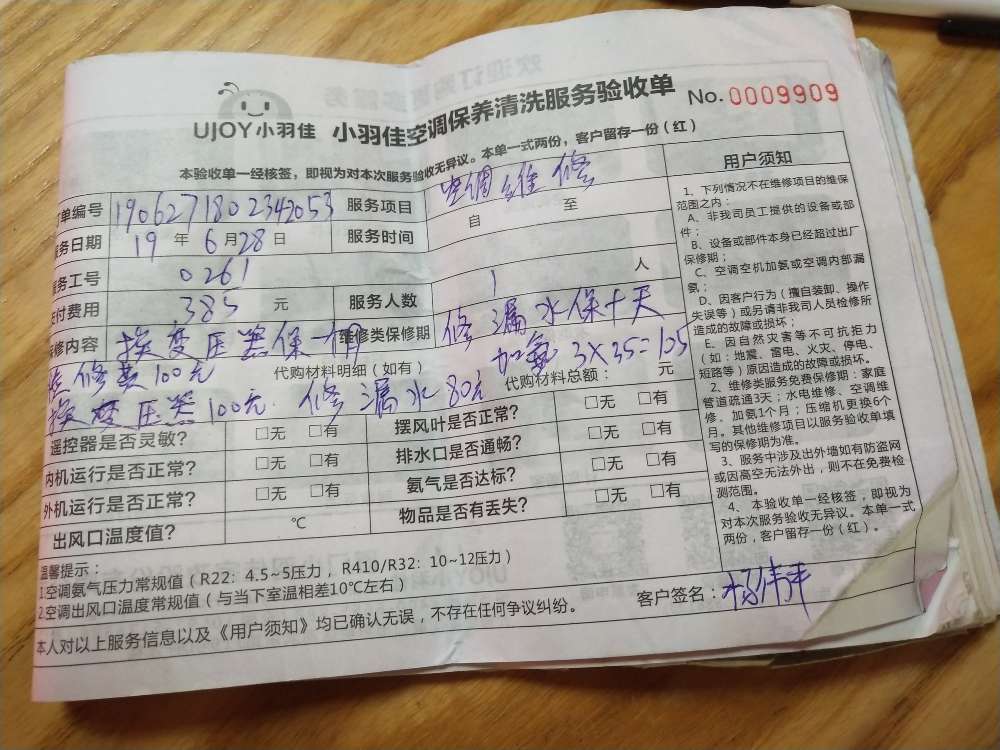 UJOY小羽佳 小羽佳空调保养清洗服务验收单 No.0009909
本验收单一经核签，即视为对本次服务验收无异议。本单一式两份，客户留存一份（红）
订单编号 1906271802342053 服务项目 空调维修
服务日期 19 年 6 月 28 日 服务时间 自 至
服务工号 0261
支付费用 385 元 服务人数 1 人
保修内容 换变压器保一 维修类保修期 修漏水保十天
检修费100元 代购材料明细（如有） 加氨 3×35=105
换变压器100元. 修漏水80元 代购材料总额： 元
遥控器是否灵敏？ □无 □有 摆风叶是否正常？ □无 □有
内机运行是否正常？ □无 □有 排水口是否通畅？ □无 □有
外机运行是否正常？ □无 □有 氨气是否达标？ □无 □有
出风口温度值？ ℃ 物品是否有丢失？ □无 □有
温馨提示：
1.空调氨气压力常规值（R22：4.5~5压力，R410/R32：10~12压力）
2.空调出风口温度常规值（与当下室温相差10℃左右）
本人对以上服务信息以及《用户须知》均已确认无误，不存在任何争议纠纷。
客户签名：
用户须知
1、下列情况不在维修项目的维保
范围之内：
A、非我司员工提供的设备或部
件；
B、设备或部件本身已经超过出厂
保修期；
C、空调空机加氨或空调内部漏
氨；
D、因客户行为（擅自装卸、操作
失误等）或另请非我司人员检修所
造成的故障或损坏；
E、因自然灾害等不可抗拒力
（如：地震、雷电、火灾、停电、
短路等）原因造成的故障或损坏。
2、维修类服务免费保修期：家庭
管道疏通3天；水电维修、空调维
修、加氨1个月；压缩机更换6个
月。其他维修项目以服务验收单填
写的保修期为准。
3、服务中涉及出外墙如有防盗网
或因高空无法外出，则不在免费检
测范围。
4、本验收单一经核签，即视为
对本次服务验收无异议。本单一式
两份，客户留存一份（红）。